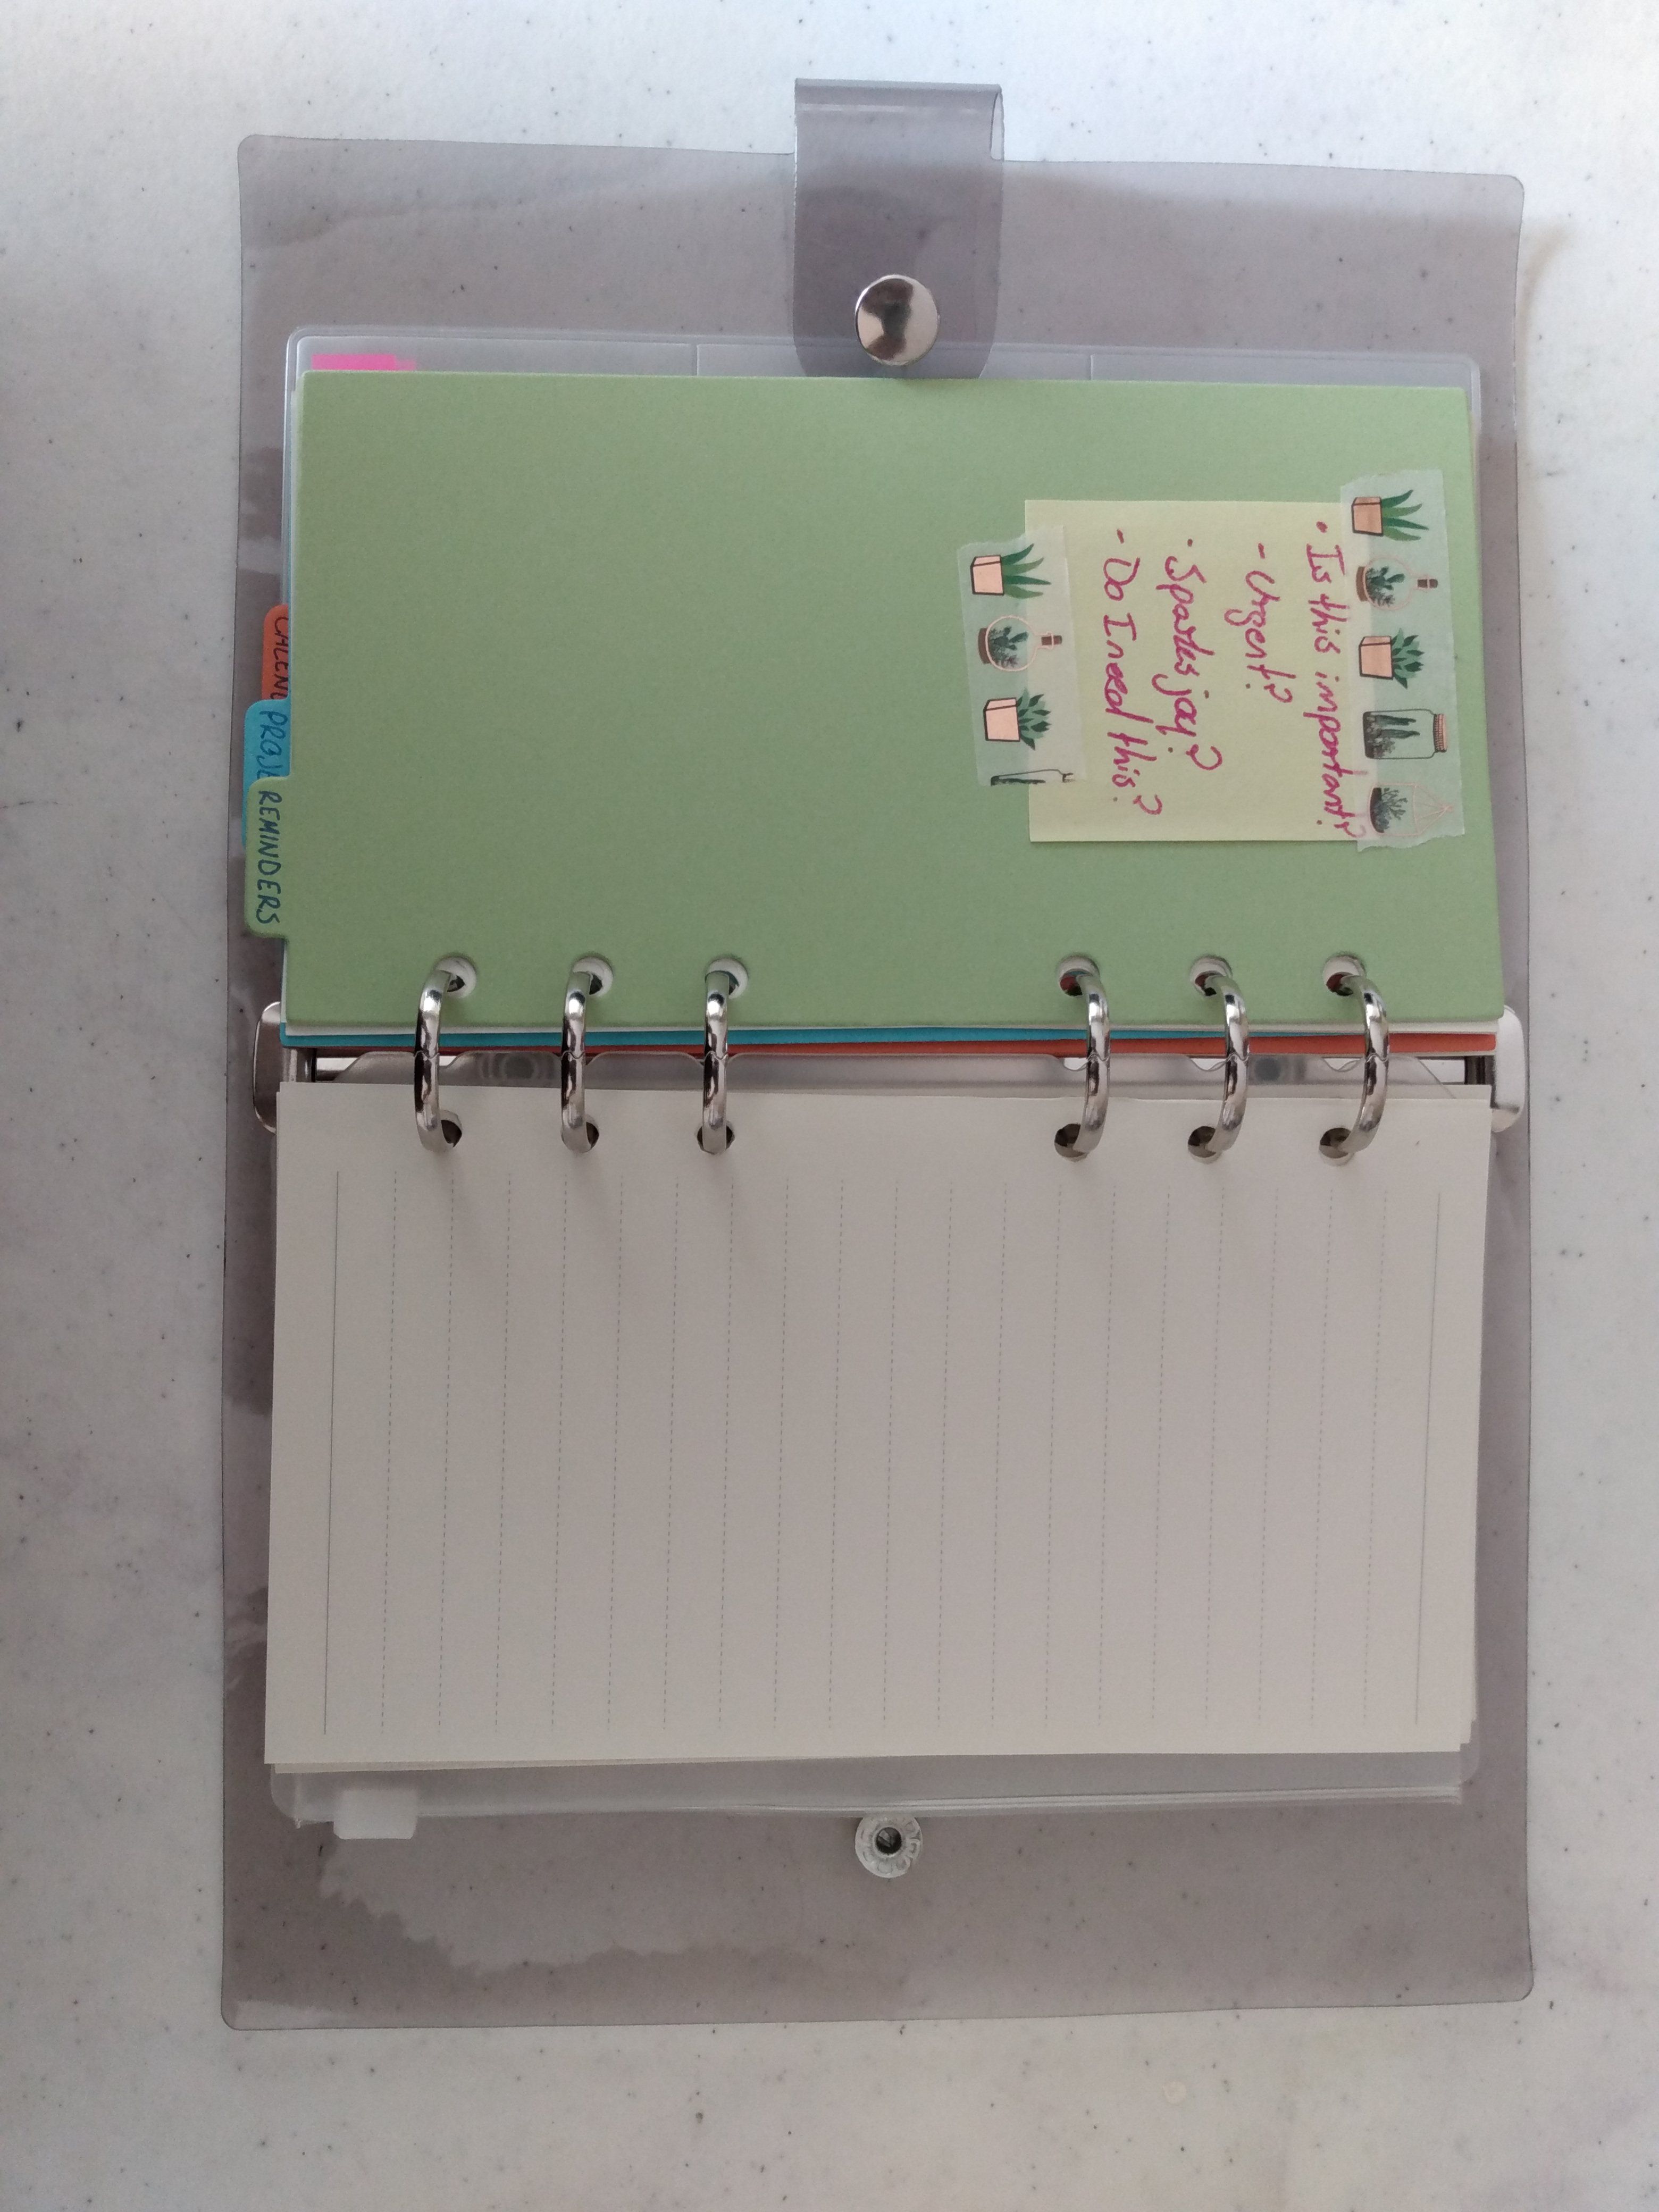 • Is this important?
- Urgent?
· Sparks joy?
- Do I need this?
CALEN
PROJE
REMINDERS